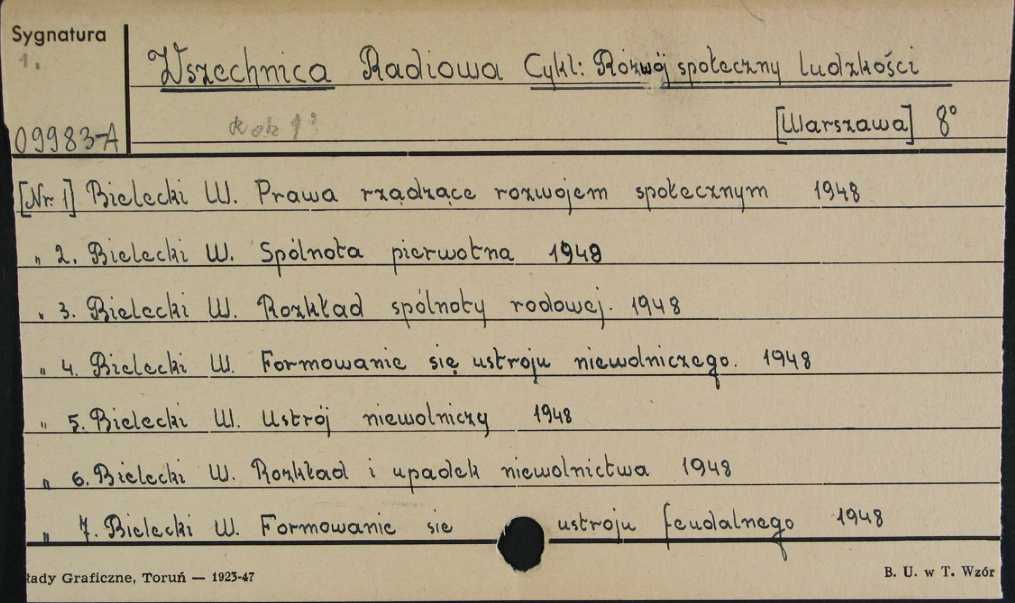 Sygnatura
1.
Wszechnica Radiowa Cykl: Rozwój społeczny ludzkości
09983-A
Rok 1°
[Warszawa] 8°
[Nr 1] Bielecki W. Prawa rządzące rozwojem społecznym 1948
" 2. Bielecki W. Spólnota pierwotna 1948
" 3. Bielecki W. Rozkład spólnoty rodowej. 1948
" 4. Bielecki W. Formowanie się ustroju niewolniczego. 1948
" 5. Bielecki W. Ustrój niewolniczy 1948
" 6. Bielecki W. Rozkład i upadek niewolnictwa 1948
" 7. Bielecki W. Formowanie sie ustroju feudalnego 1948
łady Graficzne, Toruń — 1923-47
B. U. w T. Wzór